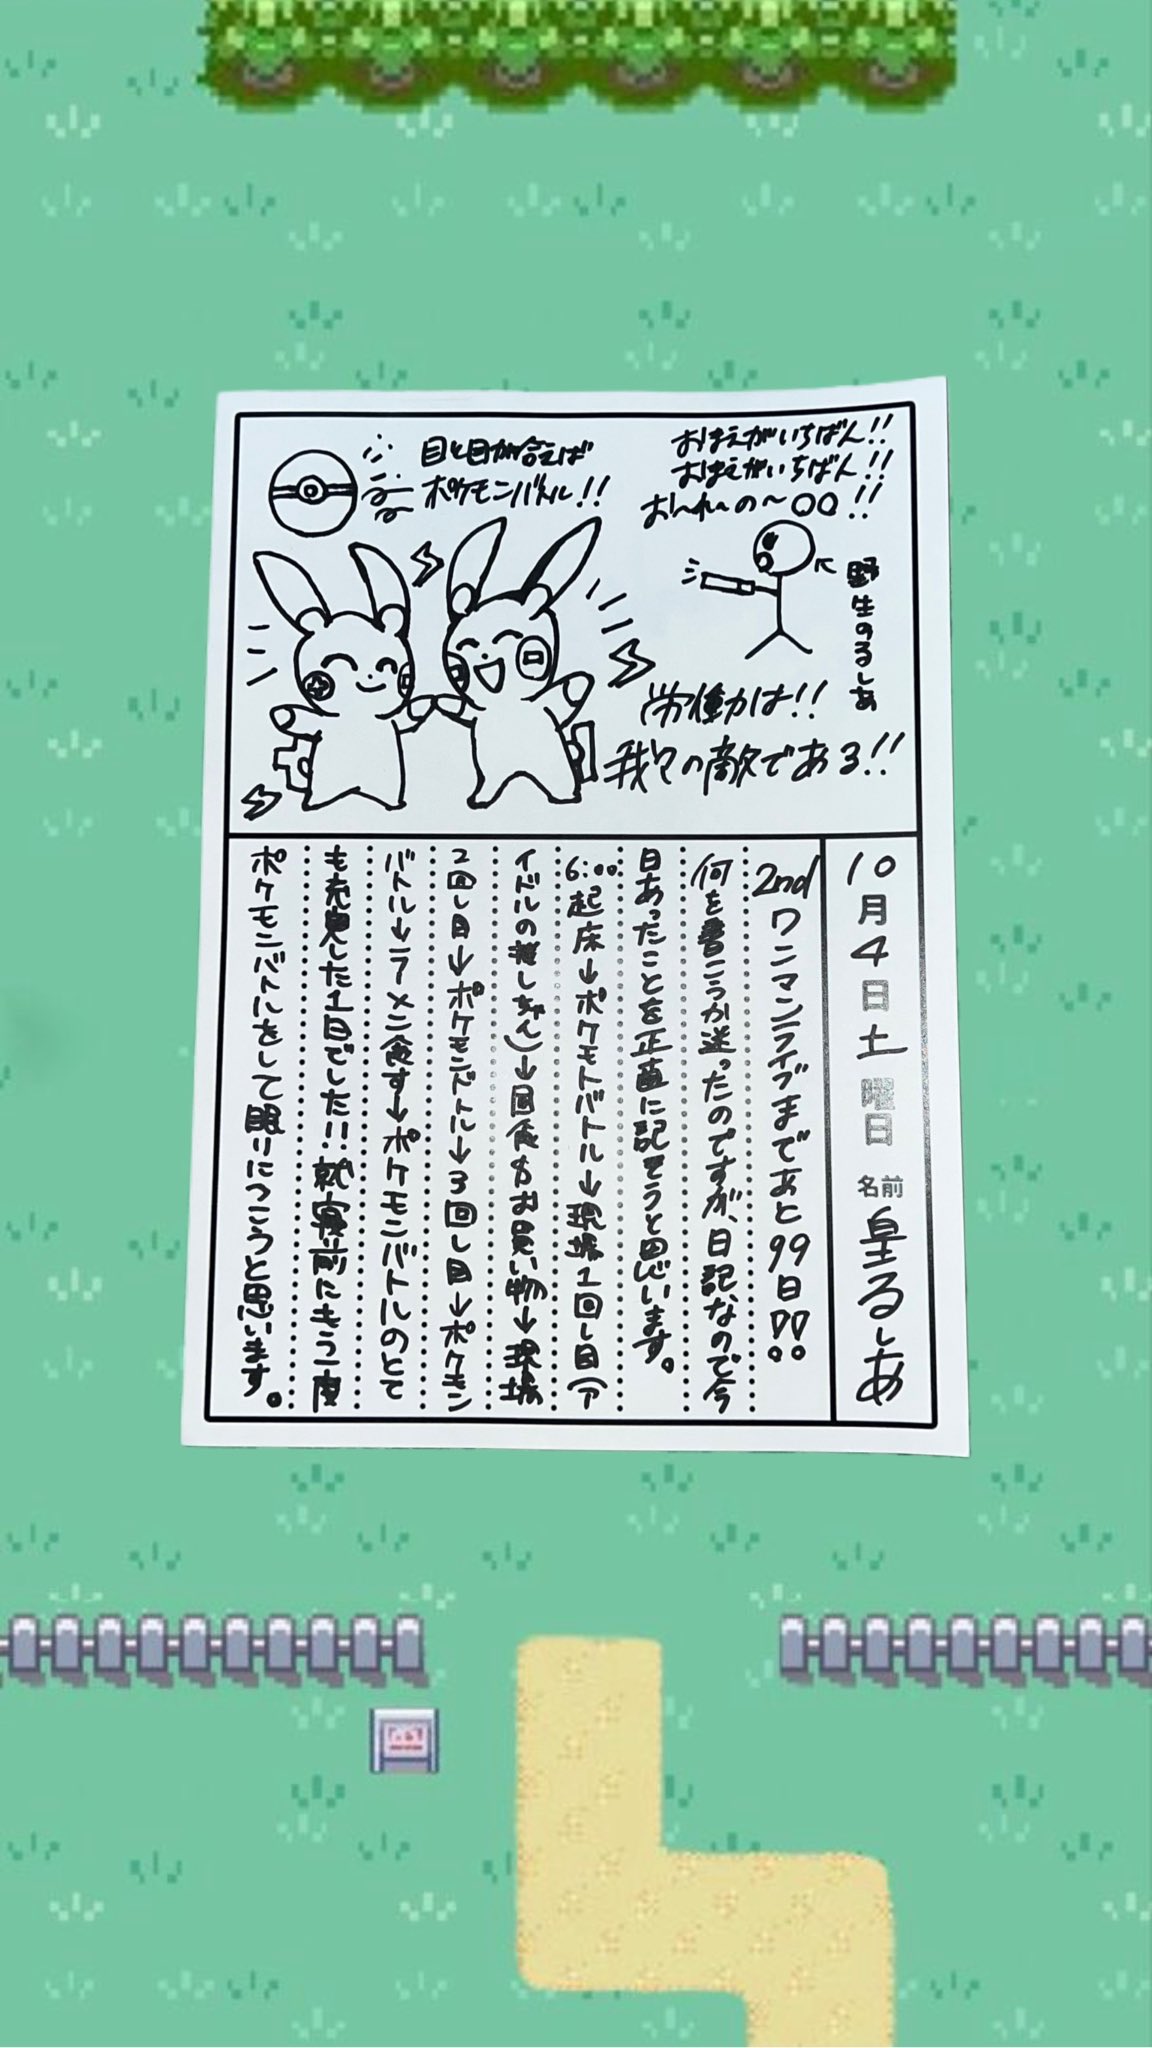 目と目が合えば
ポケモンバトル!!
おまえがいちばん!!
おまえがいちばん!!
お〜れ〜の〜〇〇!!
野生のるしあ
労働力は!!
我々の敵である!!
10月4日土曜日 名前 皇るしあ
2ndワンマンライブまであと99日!!
何を書こうか迷ったのですが、日記なので今
日あったことを正直に記そうと思います。
6:00起床→ポケモバトル→現場1回し目(ア
イドルの推しぢゃん)→回食がお買い物→現場
2回し目→ポケモンバトル→3回し目→ポケモン
バトル→ラーメン食す→ポケモンバトルのとて
も充実した1日でした!!就寝前にもう一度
ポケモンバトルをして眠りにつこうと思います。